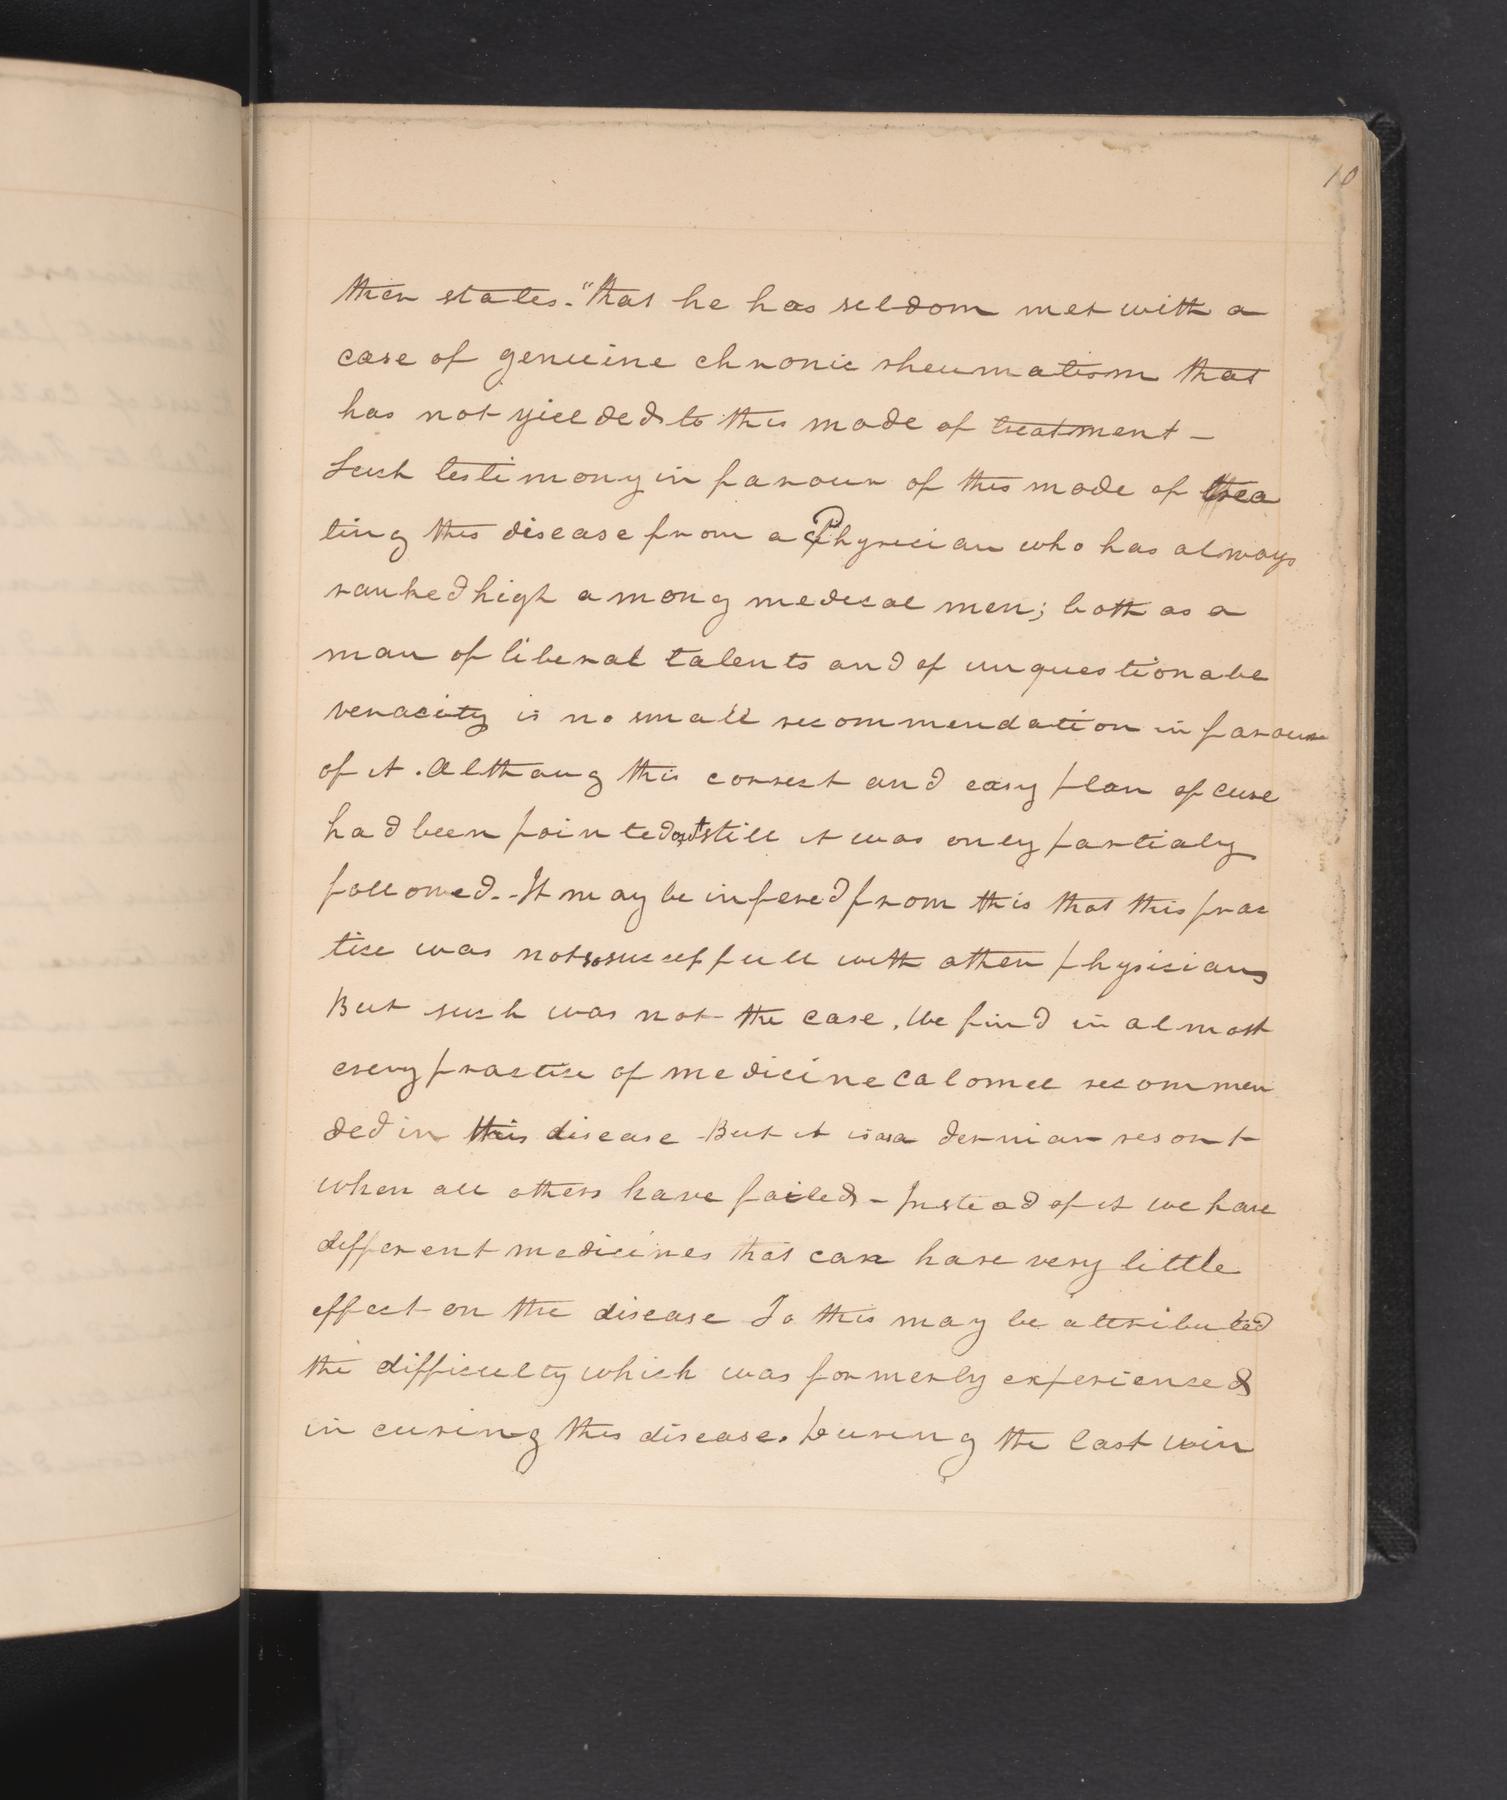 10
then states. "that he has seldom met with a
case of genuine chronic rheumatism that
has not yielded to this mode of treatment -
Such testimony in favour of this mode of trea
ting this disease from a Physician who has always
ranked high among medical men; both as a
man of liberal talents and of unquestionabe
veracity is no small recommendation in favour
of it. Althoug this correct and easy plan of cure
had been pointed out still it was only partialy
followed. - It may be infered from this that this prac
tise was not so successfull with other physicians
But such was not the case. We find in almost
every practise of medicine calomel recommen
ded in this disease But it is as a derniar resort
when all others have failed - Instead of it we have
different medicines that can have very little
effect on the disease To this may be attributed
the difficulty which was formerly experienced
in curing this disease. During the last win